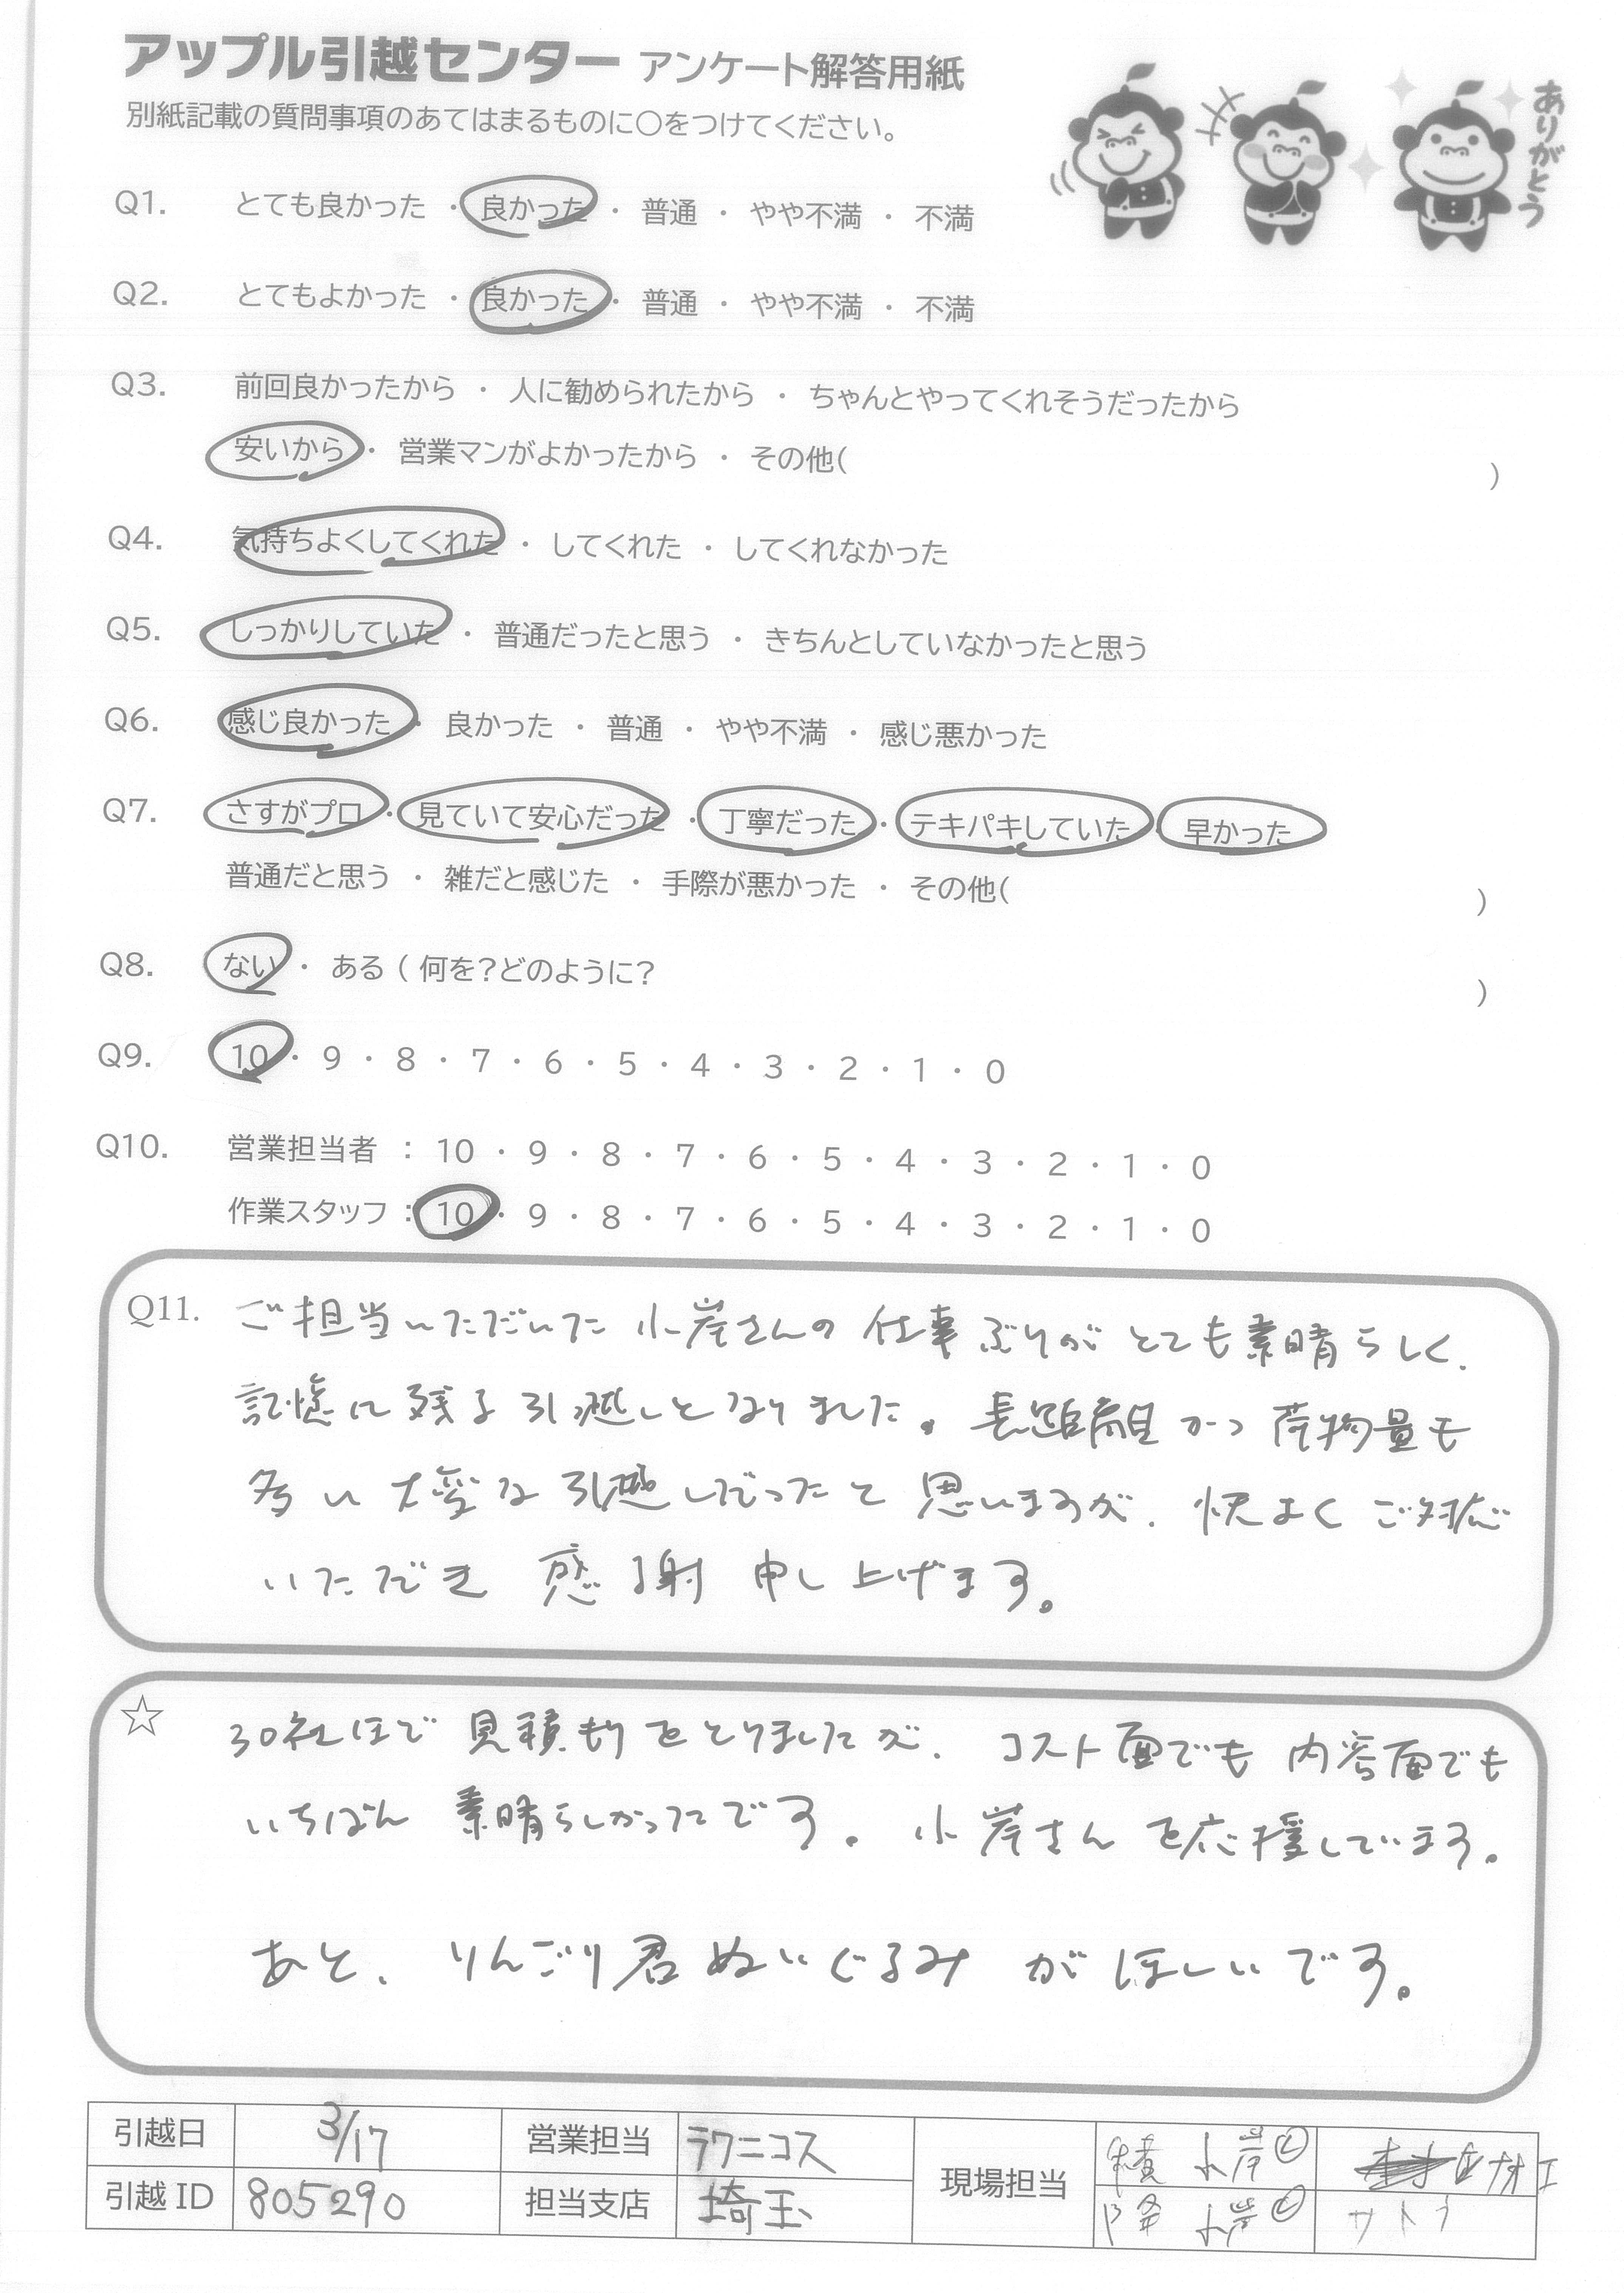 アップル引越センター アンケート解答用紙
別紙記載の質問事項のあてはまるものに○をつけてください。
ありがとう
Q1. とても良かった ・ 良かった ・ 普通 ・ やや不満 ・ 不満
Q2. とてもよかった ・ 良かった ・ 普通 ・ やや不満 ・ 不満
Q3. 前回良かったから ・ 人に勧められたから ・ ちゃんとやってくれそうだったから
安いから ・ 営業マンがよかったから ・ その他( )
Q4. 気持ちよくしてくれた ・ してくれた ・ してくれなかった
Q5. しっかりしていた ・ 普通だったと思う ・ きちんとしていなかったと思う
Q6. 感じ良かった ・ 良かった ・ 普通 ・ やや不満 ・ 感じ悪かった
Q7. さすがプロ ・ 見ていて安心だった ・ 丁寧だった ・ テキパキしていた ・ 早かった
普通だと思う ・ 雑だと感じた ・ 手際が悪かった ・ その他( )
Q8. ない ・ ある ( 何を?どのように? )
Q9. 10 ・ 9 ・ 8 ・ 7 ・ 6 ・ 5 ・ 4 ・ 3 ・ 2 ・ 1 ・ 0
Q10. 営業担当者 : 10 ・ 9 ・ 8 ・ 7 ・ 6 ・ 5 ・ 4 ・ 3 ・ 2 ・ 1 ・ 0
作業スタッフ : 10 ・ 9 ・ 8 ・ 7 ・ 6 ・ 5 ・ 4 ・ 3 ・ 2 ・ 1 ・ 0
Q11. ご担当いただいた 小岸さんの 仕事ぶりが とても素晴らしく、
記憶に残る引っ越しとなりました。長距離かつ荷物量も
多い大変な引越しだったと思いますが、快よくご対応
いただき 感謝 申し上げます。
☆ 30社ほど見積もりをとりましたが、コスト面でも内容面でも
いちばん 素晴らしかったです。小岸さんを応援しています。
あと、りんごり君ぬいぐるみ が ほしいです。
引越日 3/17 営業担当 ラクニコス 現場担当 積 小岸
引越 ID 805290 担当支店 埼玉 降 小岸 サトウ